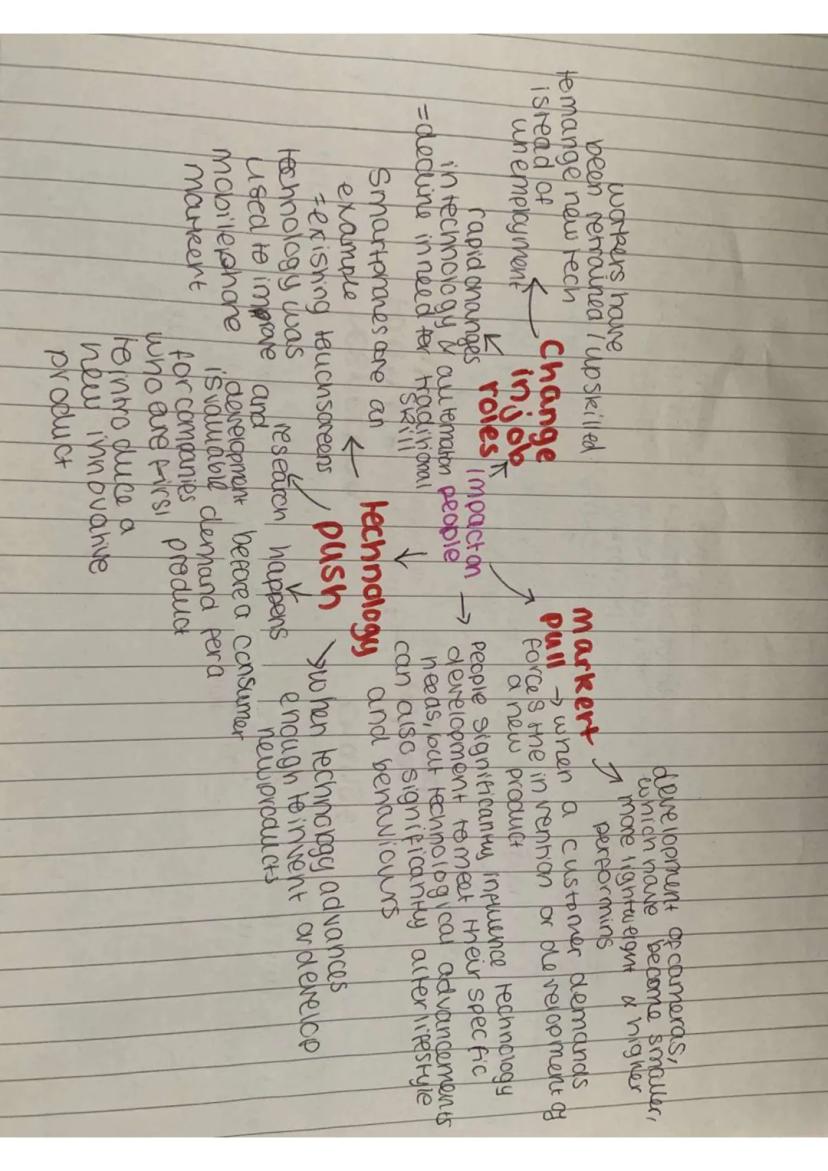 workers have
been retrained / upskilled
to mange new tech
isread of
unemployment
Change
in job
roles
rapid changes
in technology & automaton
= decline in need for traditional
skill
impact on
people
markert
pull → when a customer demands
forces the invention or development of
a new product
development of cameras,
which have become smaller,
more lightweight & higher
performing
people significantly influence technology
development to meet their specific
needs, but technological advancements
can also significantly alter lifestyle
and behaviours
technology
push
when technology advances
enough to invent or develop
new products
Smartphones are an
example
= existing touchscreens
technology was
used to improve
mobile phone
markeent
research happens
and
development before a consumer
is valuable demand for a
for companies product
who are first
to introduce a
new innovative
product